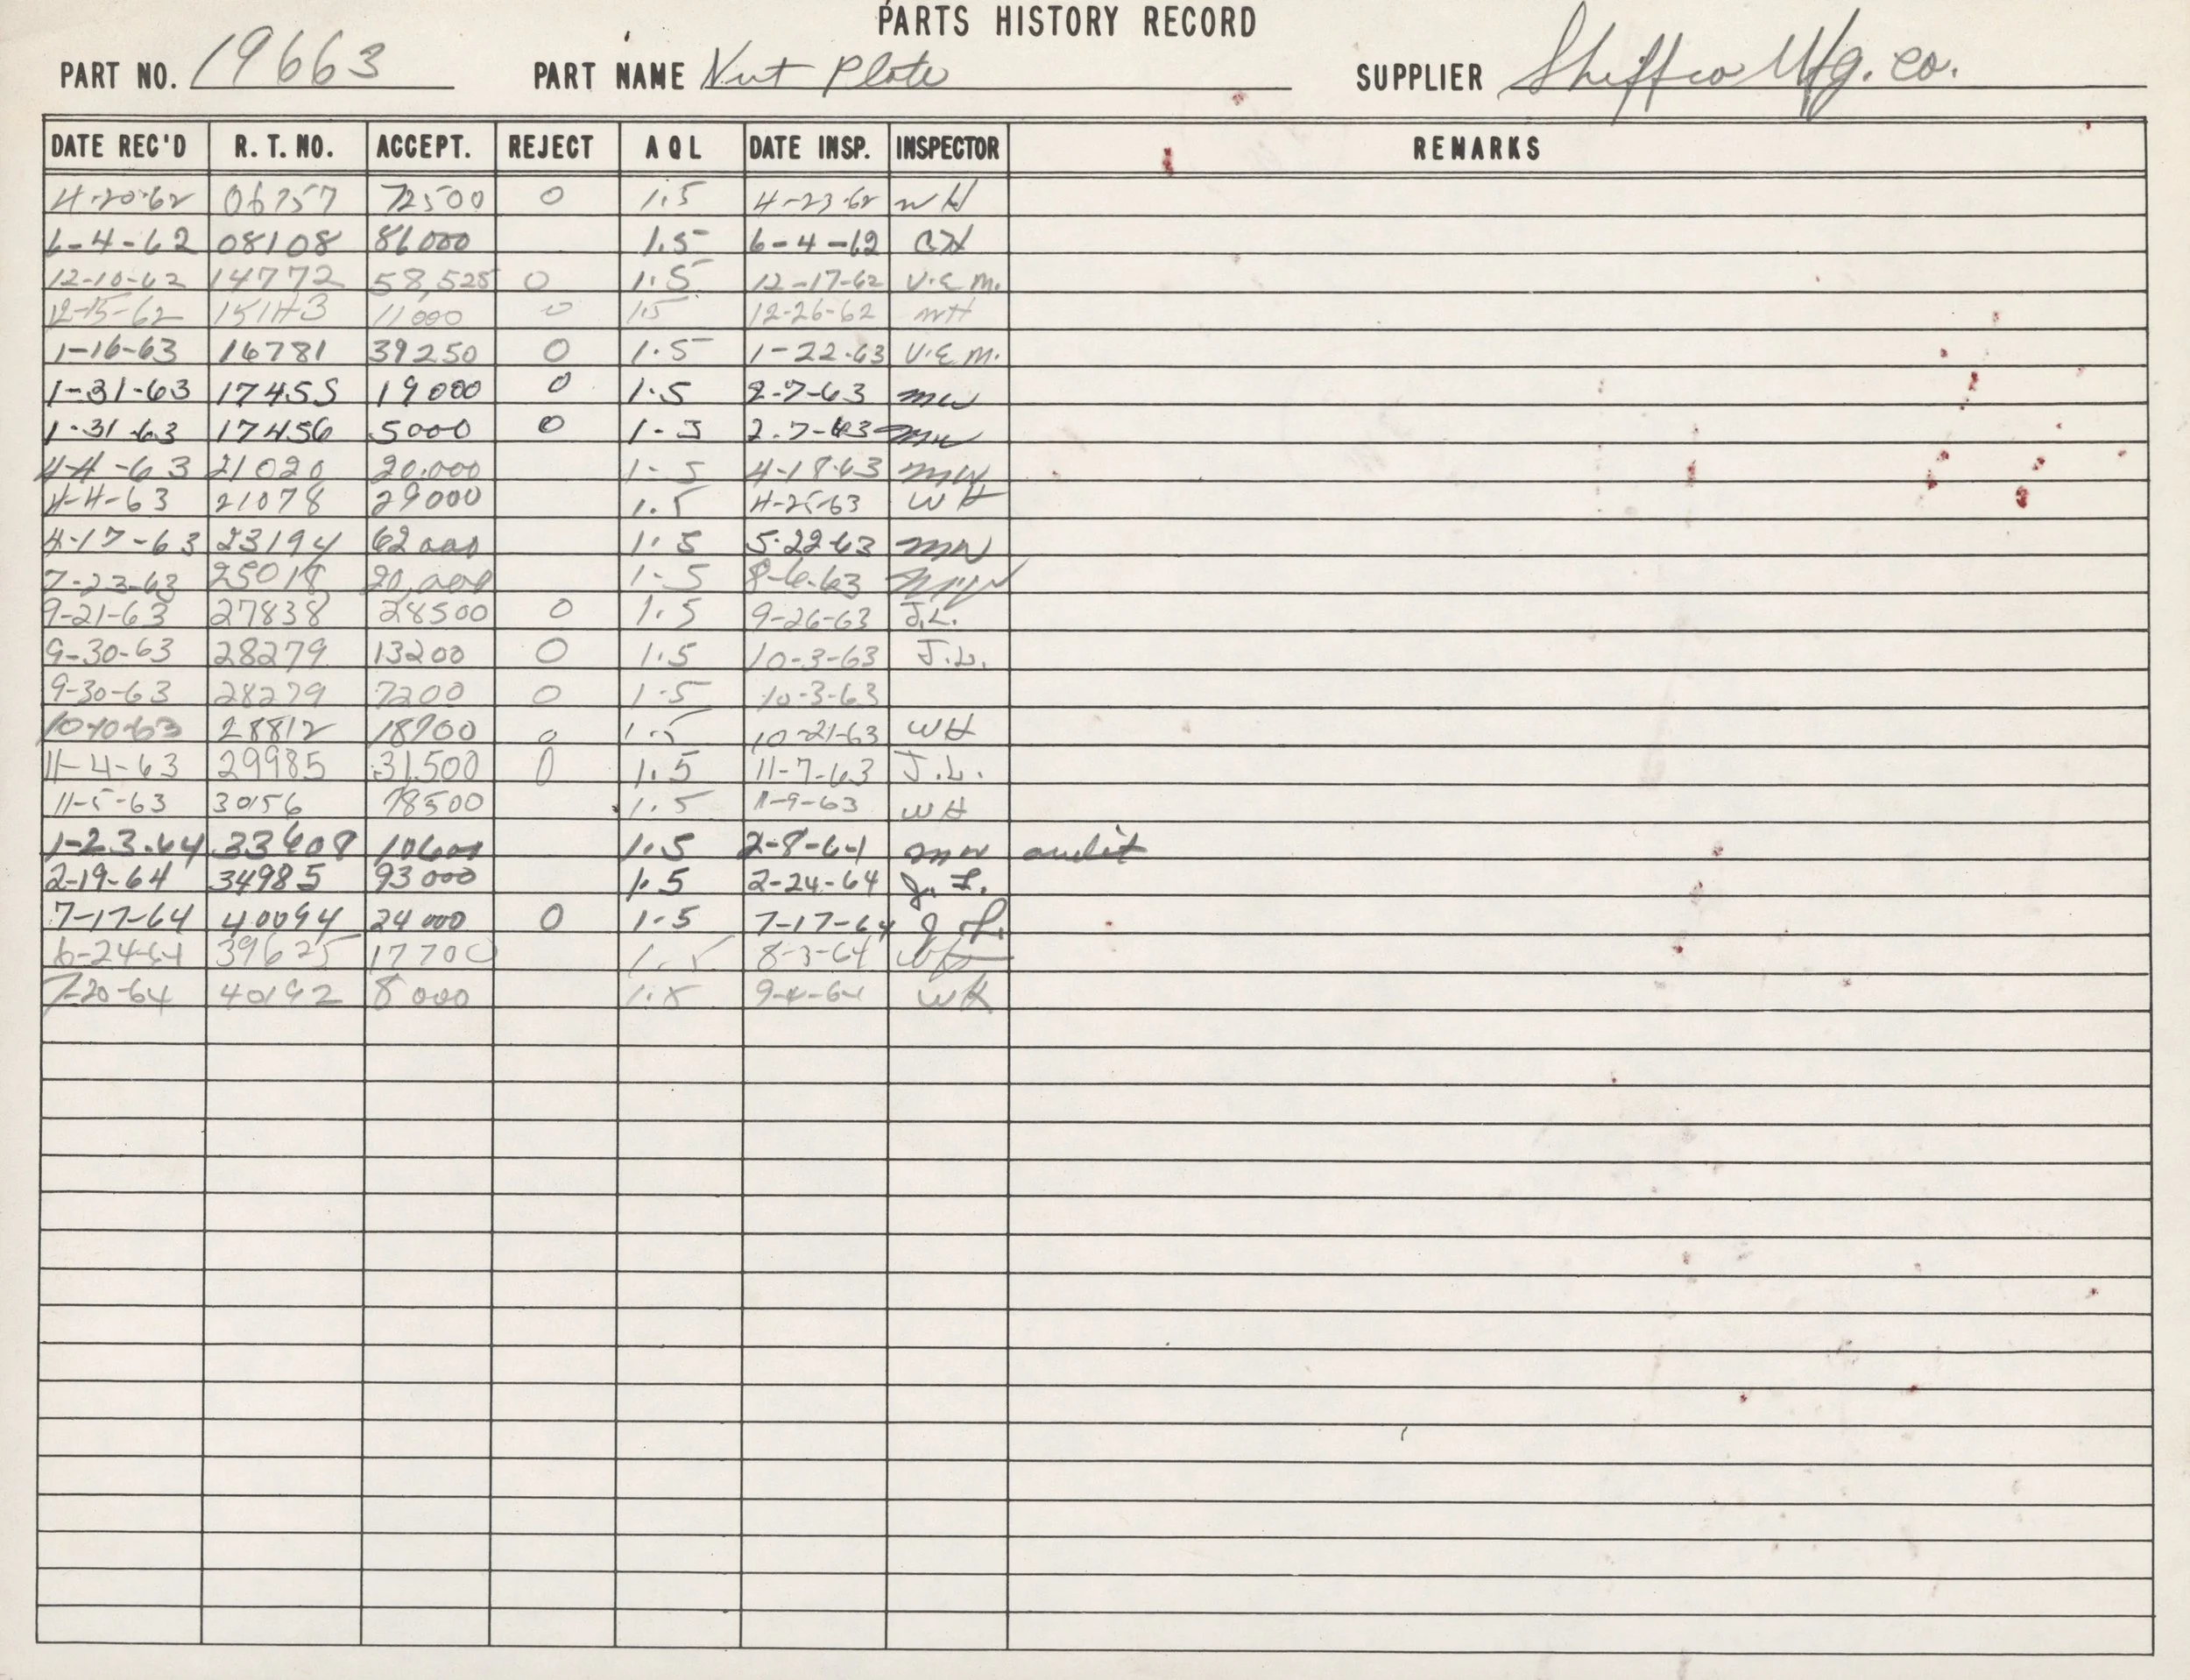 PARTS HISTORY RECORD
PART NO. 19663 PART NAME Nut Plate SUPPLIER Sheffco Mfg. Co.
DATE REC'D R. T. NO. ACCEPT. REJECT AQL DATE INSP. INSPECTOR REMARKS
4-20-62 06757 72500 0 1.5 4-23-62 WH
6-4-62 08108 86000 1.5 6-4-62
12-10-62 14772 58,525 0 1.5 12-17-62 V.E.M.
12-15-62 15143 11000 0 1.5 12-26-62
1-16-63 16781 39250 0 1.5 1-22-63 V.E.M.
1-31-63 17455 19000 0 1.5 2-7-63 MW
1-31-63 17456 5000 0 1-5 2.7-63 MW
4-4-63 21020 20,000 1-5 4-18-63 MW
4-4-63 21078 29000 1.5 4-25-63 WH
4-17-63 23194 62000 1.5 5-22-63 MW
7-23-63 25018 20,000 1-5 8-6-63 MW
9-21-63 27838 28500 0 1.5 9-26-63 J.L.
9-30-63 28279 13200 0 1.5 10-3-63 J.L.
9-30-63 28279 7200 0 1.5 10-3-63
10-10-63 28812 18700 0 1.5 10-21-63 WH
11-4-63 29985 31,500 0 1.5 11-7-63 J.L.
11-5-63 30156 78500 1.5 11-9-63 WH
1-23-64 10600 1.5 2-8-64 MW audit
2-19-64 34985 93000 1.5 2-24-64 J. L.
7-17-64 40094 24000 0 1-5 7-17-64 J L.
6-24-64 39625 17700 1.5 8-3-64
7-20-64 40192 8000 1.5 9-4-64 WH